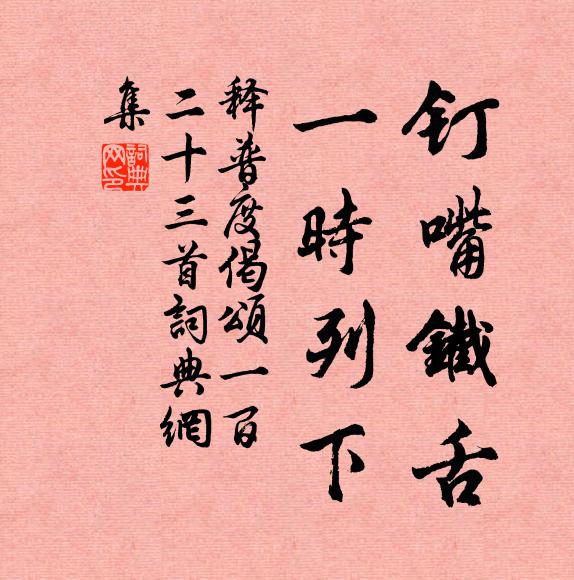 釘嘴鐵舌
一時列下
释普度偈頌一百
二十三首詞典網
集
詞典
网印